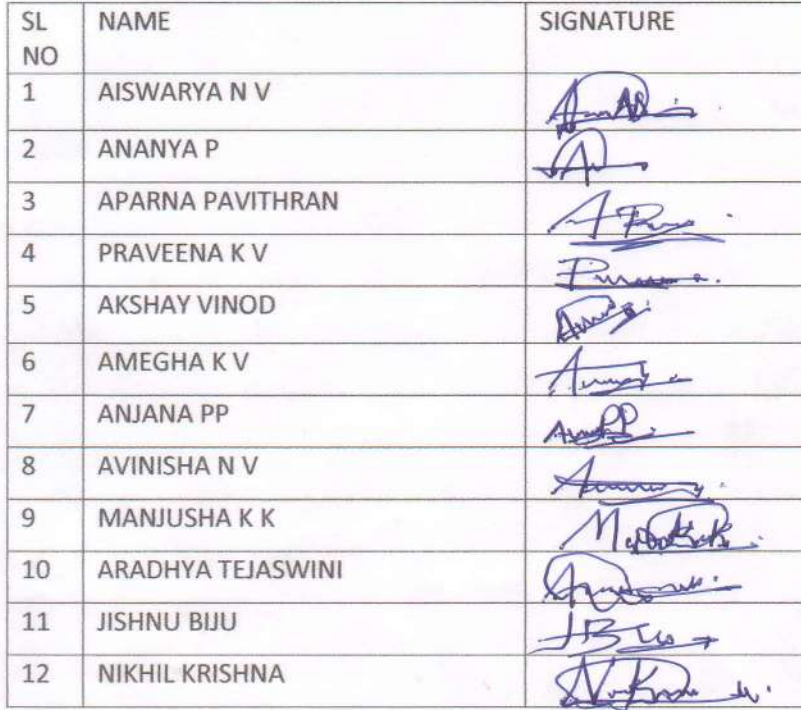 SL NO NAME SIGNATURE
1 AISWARYA N V
2 ANANYA P
3 APARNA PAVITHRAN
4 PRAVEENA K V
5 AKSHAY VINOD
6 AMEGHA K V
7 ANJANA PP
8 AVINISHA N V
9 MANJUSHA K K
10 ARADHYA TEJASWINI
11 JISHNU BIJU
12 NIKHIL KRISHNA